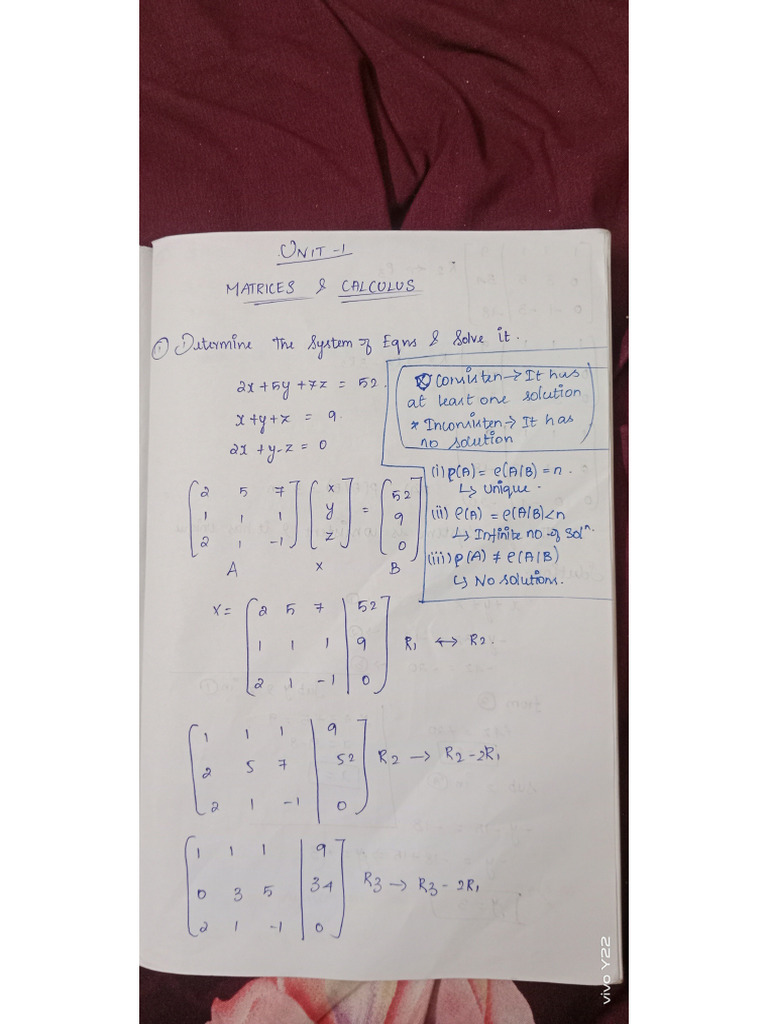 UNIT-1
MATRICES & CALCULUS
① Determine the System of Eqns & Solve it.
2x+5y+7z = 52.
x+y+z = 9.
2x+y-z = 0
Consisten → It has
at least one solution
* Inconsisten → It has
no solution
(i) ρ(A) = ρ(A/B) = n.
↳ unique.
(ii) ρ(A) = ρ(A/B)<n
↳ Infinite no of Solⁿ.
(iii) ρ(A) ≠ ρ(A/B)
↳ No solutions.
[2 5 7] [x] = [52]
[1 1 1] [y] [9]
[2 1 -1] [z] [0]
A x B
X = [2 5 7 | 52]
[1 1 1 | 9] R1 ↔ R2.
[2 1 -1 | 0]
[1 1 1 | 9]
[2 5 7 | 52] R2 → R2-2R1
[2 1 -1 | 0]
[1 1 1 | 9]
[0 3 5 | 34] R3 → R3-2R1
[2 1 -1 | 0]
vivo Y22